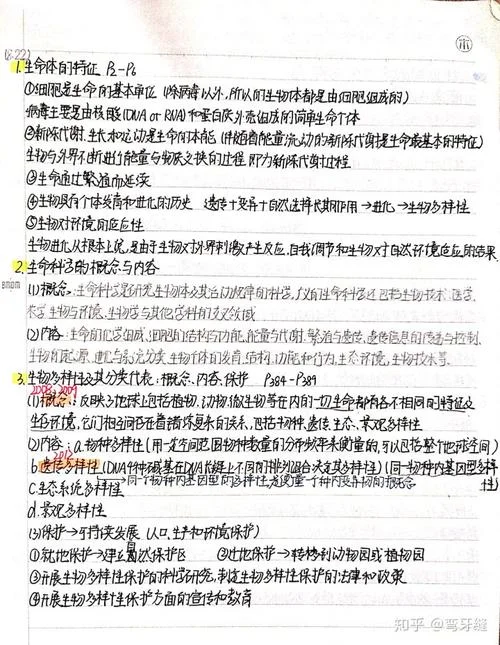 (8.22)
林
1.生命体的特征 P3-P6
①细胞是生命的基本单位（除病毒以外,所以的生物体都是由细胞组成的）
病毒主要是由核酸(DNA or RNA)和蛋白质外壳组成的简单生命个体
②新陈代谢、生长和运动是生命的本能（伴随着能量流动的新陈代谢是生命最基本的特征）
生物与外界不断进行能量与物质交换的过程,即为新陈代谢过程
③生命通过繁殖而延续
④生物具有个体发育和进化的历史 遗传+变异+自然选择长期作用→进化→生物多样性
⑤生物对环境的适应性
生物进化从根本上说,是由于生物对外界刺激产生反应、自我调节和生物对自然环境适应的结果
2.生命科学的概念与内容
(1)概念:生命科学是研究生物体及其活动规律的科学,广义的生命科学还包括生物技术、医学、
农学、生物与环境、生物学与其他学科的交叉领域
(2)内容:生命的化学组成、细胞的结构与功能、能量与代谢、繁殖与遗传、遗传信息的传递与控制、
生物的起源、进化与系统分类、生物个体的发育、结构、功能和行为、生态环境、生物技术等.
3.生物多样性及其分类代表:概念、内容、保护 P384-P389
2008、2009
(1)概念:反映了地球上包括植物、动物、微生物等在内的一切生命都有各不相同的特征及
生存环境,它们相互间存在着错综复杂的关系,包括物种、遗传、生态、景观多样性
(2)内容:a.物种多样性(用一定空间范围物种数量的分布频率来衡量的,可以包括整个地球空间)
2013
b.遗传多样性(DNA分子中碱基在DNA长链上不同的排列组合决定其多样性)(同一物种内基因型多样性)
→同一个物种内基因型的多样性,是衡量一个种内变异的概念
c.生态系统多样性
d.景观多样性
(3)保护→可持续发展（人口、生产和环境保护）
①就地保护→建立自然保护区 ②迁地保护→转移到动物园或植物园
③开展生物多样性保护的科学研究,制定生物多样性保护的法律和政策
④开展生物多样性保护方面的宣传和教育
知乎 @弯牙缝